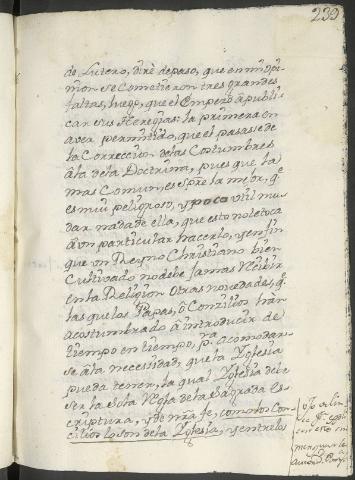 239
de Lutero, dirè depaso, que en mi opi-
nion se Cometieron tres grandes
faltas, luego, que el Empezó à publi-
car sus Heregias: la primera en
aver permitido, que el pasase de
la Correccion delas Costumbres
àla dela Doctrina, pues que la
mas Comun, es spre la mejor, q̃
es mui peligroso, y poco util mu-
dar nada de ella, que esto no le toca
à un particular hacerlo, y en fin
que un Reyno Christiano bien
Cultivado no debe Jamas recivir
en la Religion Otras novedades, q̃
las que los Papas, ò Concilios han
acostumbrado à introducir de
tiempo en tiempo, pa. acomodar-
se àla necesidad, que la Yglesia
pueda tener, la qual Yglesia deve
ser la Sola Regla de la Sagrada Es-
criptura, y de mia fe, como los Con-
cilios lo son de la Yglesia, y entre los